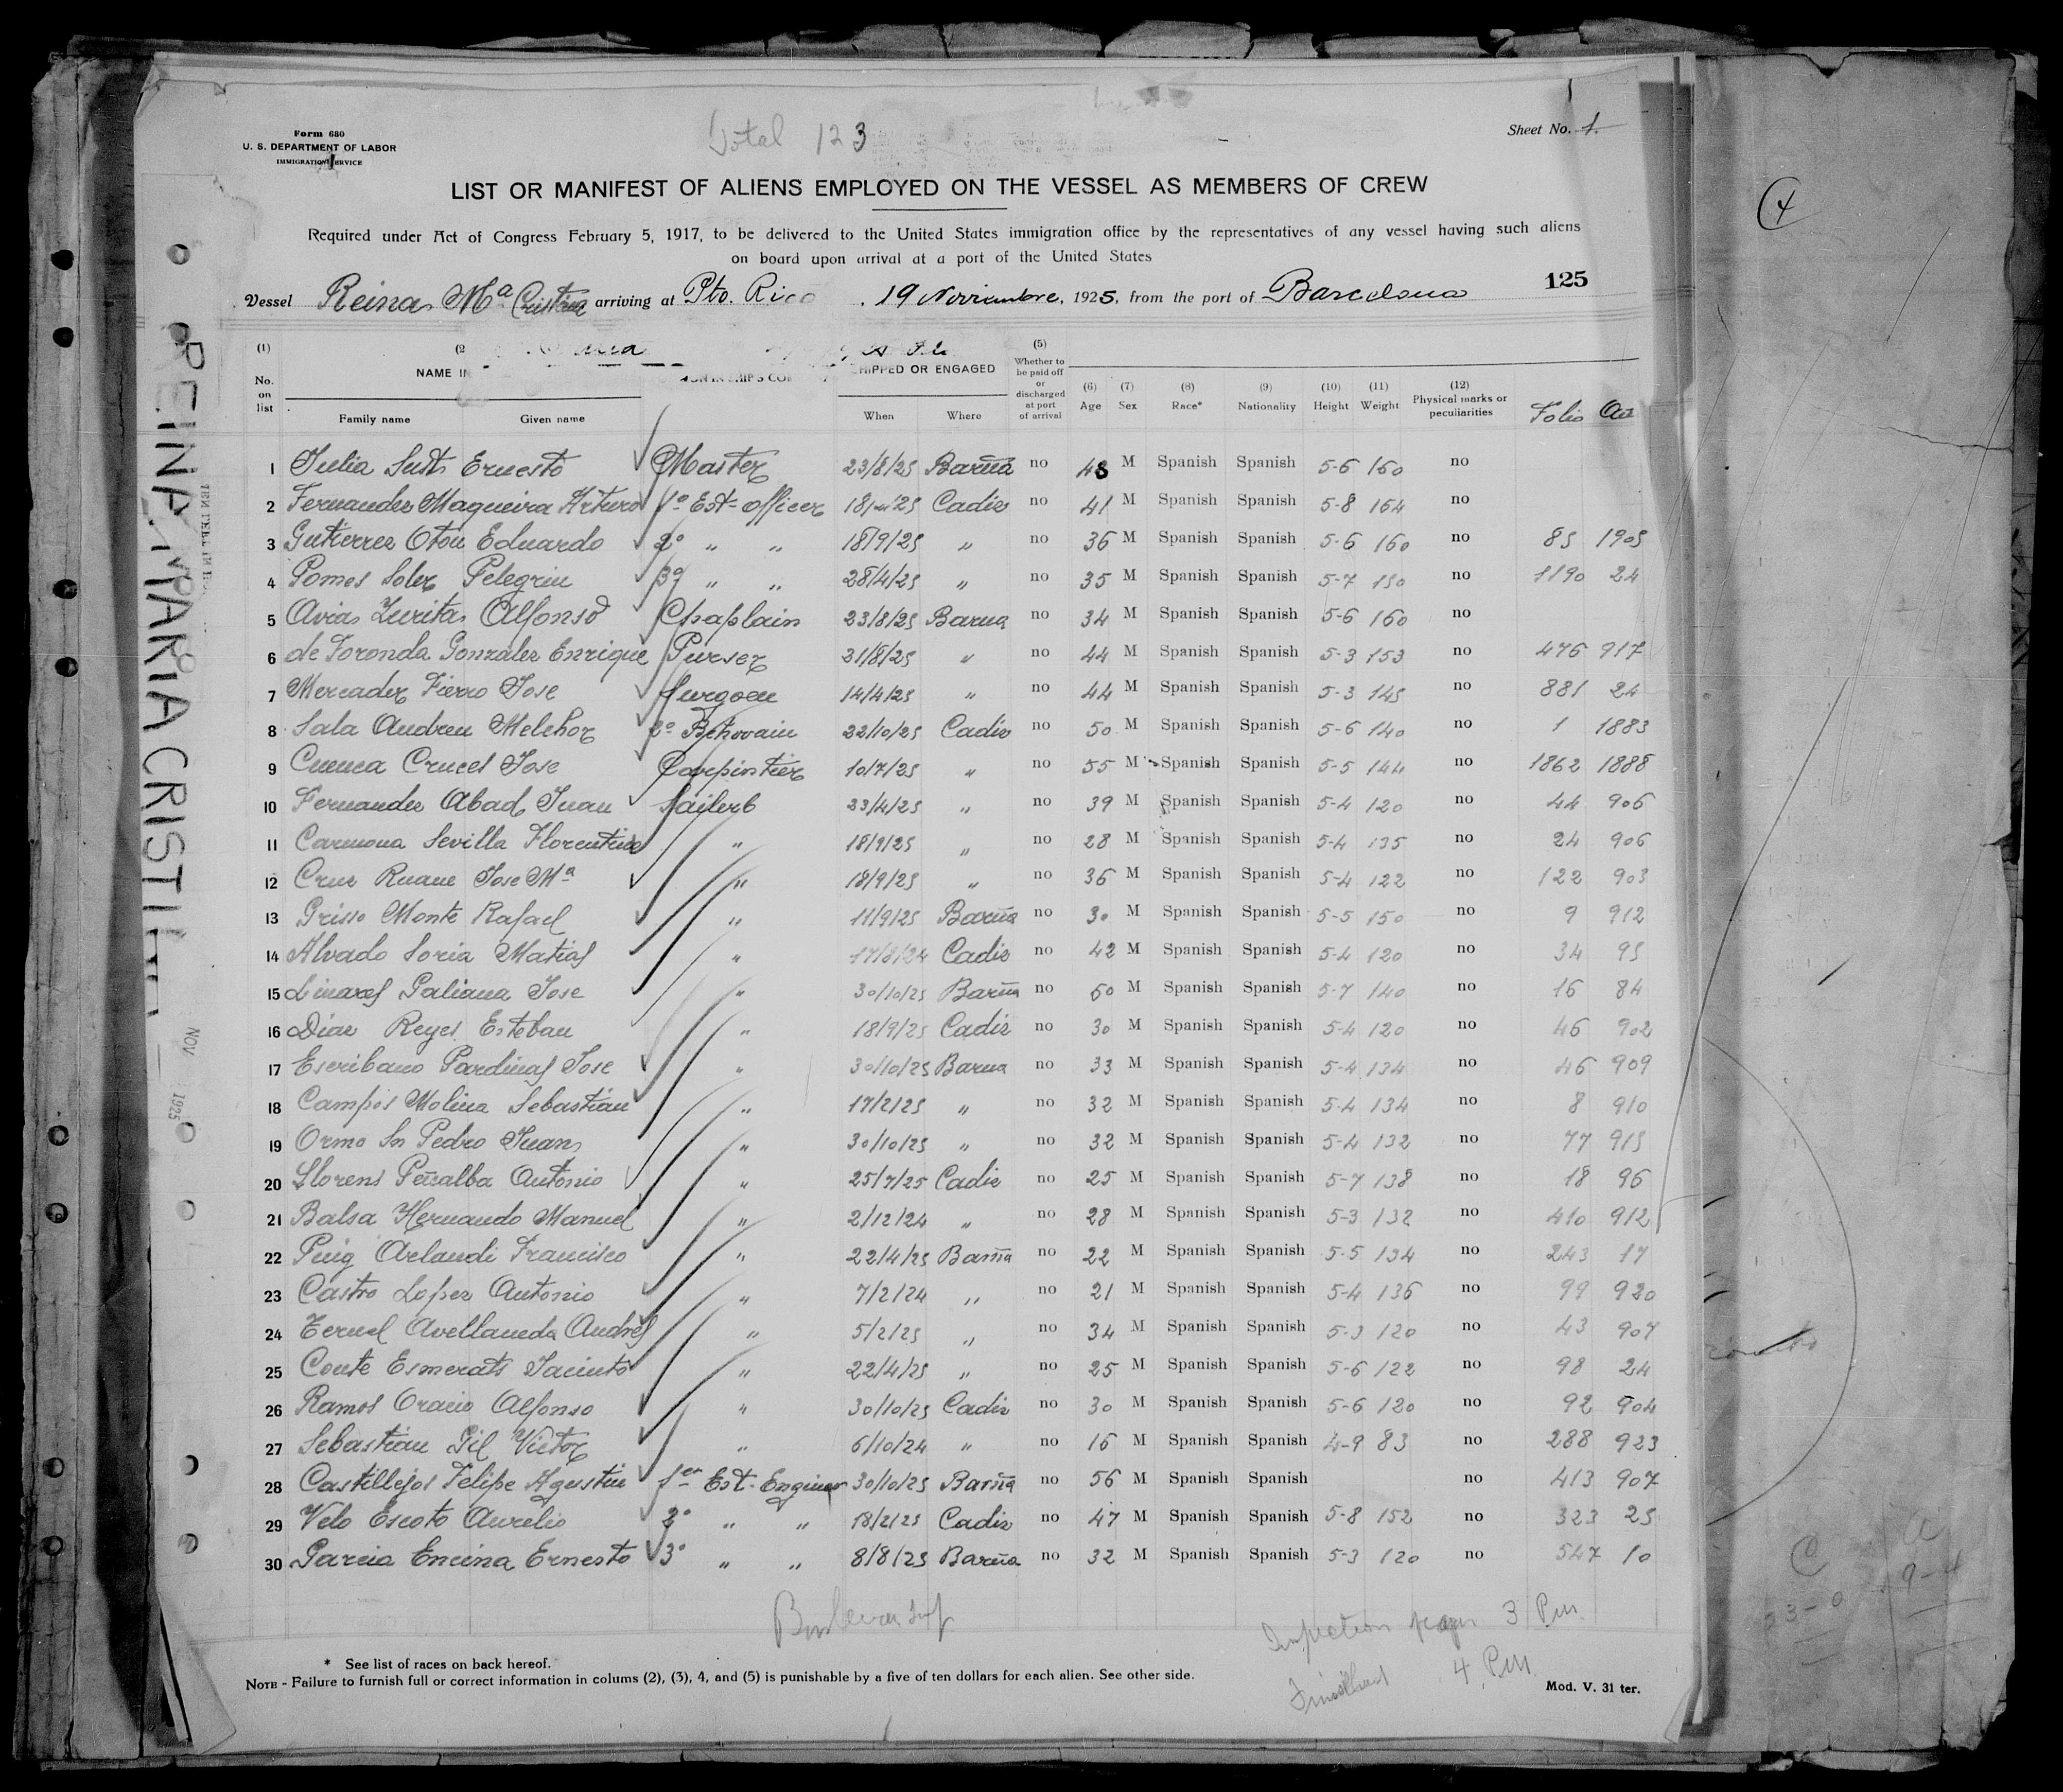 Form 680
U. S. DEPARTMENT OF LABOR
IMMIGRATION SERVICE
Total 123
Sheet No. 1.
LIST OR MANIFEST OF ALIENS EMPLOYED ON THE VESSEL AS MEMBERS OF CREW
Required under Act of Congress February 5, 1917, to be delivered to the United States immigration office by the representatives of any vessel having such aliens
on board upon arrival at a port of the United States
125
Vessel Reina Mª Cristina arriving at Pto. Rico, 19 Noviembre, 1925, from the port of Barcelona
(1) (2 (5)
No. on list NAME IN SHIPPED OR ENGAGED Whether to be paid off or discharged at port of arrival (6) Age (7) Sex (8) Race* (9) Nationality (10) Height (11) Weight (12) Physical marks or peculiarities Folio
Family name Given name When Where
1 Julia Susts Ernesto Master 23/8/25 Barña no 48 M Spanish Spanish 5-6 160 no
2 Fernandez Maqueira Arturo 1º Est-officer 25 Cadiz no 41 M Spanish Spanish 5-8 164 no
3 Gutierrez Otou Eduardo 2º " " 18/9/25 " no 36 M Spanish Spanish 5-6 160 no 85 1905
4 Pomes Soler Pelegrin 3º " " 28/4/25 " no 35 M Spanish Spanish 5-7 150 no 1190 24
5 Avias Zuritas Alfonso Chaplain 23/8/25 Barna no 34 M Spanish Spanish 5-6 160 no
6 de Foronda Gonzalez Enrique Purser 31/8/25 " no 44 M Spanish Spanish 5-3 153 no 476 917
7 Mercader Fierro Jose Surgoen 14/4/25 " no 44 M Spanish Spanish 5-3 145 no 881 24
8 Sala Andreu Melchor 2º 22/10/25 Cadiz no 50 M Spanish Spanish 5-6 140 no 1 1883
9 Cuenca Cruces Jose Carpintier 10/7/25 " no 55 M Spanish Spanish 5-5 144 no 1862 1888
10 Fernandez Abad Juan Sailerb 23/4/25 " no 39 M Spanish Spanish 5-4 120 no 44 906
11 Carmona Sevilla Florentino " 18/9/25 " no 28 M Spanish Spanish 5-4 135 no 24 906
12 Cruz Ruane Jose Mª " 18/9/25 " no 36 M Spanish Spanish 5-4 122 no 122 903
13 Grisso Monte Rafael " 11/9/25 Barña no 30 M Spanish Spanish 5-5 150 no 9 912
14 Alvado Soria Matias " 17/3/24 Cadiz no 42 M Spanish Spanish 5-4 120 no 34 95
15 Linares Galiana Jose " 30/10/25 Barña no 50 M Spanish Spanish 5-7 140 no 16 84
16 Diaz Reyes Esteban " 18/9/25 Cadiz no 30 M Spanish Spanish 5-4 120 no 46 902
17 Escribano Pardinas Jose " 30/10/25 Barna no 33 M Spanish Spanish 5-4 134 no 46 909
18 Campos Molina Sebastian " 17/2/25 " no 32 M Spanish Spanish 5-4 134 no 8 910
19 Ormo Sn Pedro Juan " 30/10/25 " no 32 M Spanish Spanish 5-4 132 no 77 915
20 Llorens Peñalba Antonio " 25/7/25 Cadiz no 25 M Spanish Spanish 5-7 138 no 18 96
21 Balsa Hernando Manuel " 2/12/24 " no 28 M Spanish Spanish 5-3 132 no 410 912
22 Puig Orlandi Francisco " 22/4/25 Barña no 22 M Spanish Spanish 5-5 134 no 243 17
23 Castro Lopez Antonio " 7/2/24 " no 21 M Spanish Spanish 5-4 136 no 99 920
24 Teruel Avellaneda Andres " 5/2/25 " no 34 M Spanish Spanish 5-3 120 no 43 907
25 Conte Esmerats Jacinto " 22/4/25 " no 25 M Spanish Spanish 5-6 122 no 98 24
26 Ramos Oracio Alfonso " 30/10/25 Cadiz no 30 M Spanish Spanish 5-6 120 no 92 904
27 Sebastian Gil Victor " 6/10/24 " no 16 M Spanish Spanish 4-9 83 no 288 923
28 Castillejos Felipe Agustin 1er Est-Enginer 30/10/25 Barña no 56 M Spanish Spanish no 413 907
29 Velo Escoto Aurelio 2º " " 18/2/25 Cadiz no 47 M Spanish Spanish 5-8 152 no 323 25
30 Garcia Encina Ernesto 3º " " 8/8/25 Barña no 32 M Spanish Spanish 5-3 120 no 547 10
Inspection began 3 Pm
Finished 4 Pm
* See list of races on back hereof.
NOTE - Failure to furnish full or correct information in colums (2), (3), 4, and (5) is punishable by a five of ten dollars for each alien. See other side.
Mod. V. 31 ter.
REINA MARIA CRISTINA
NOV 1925